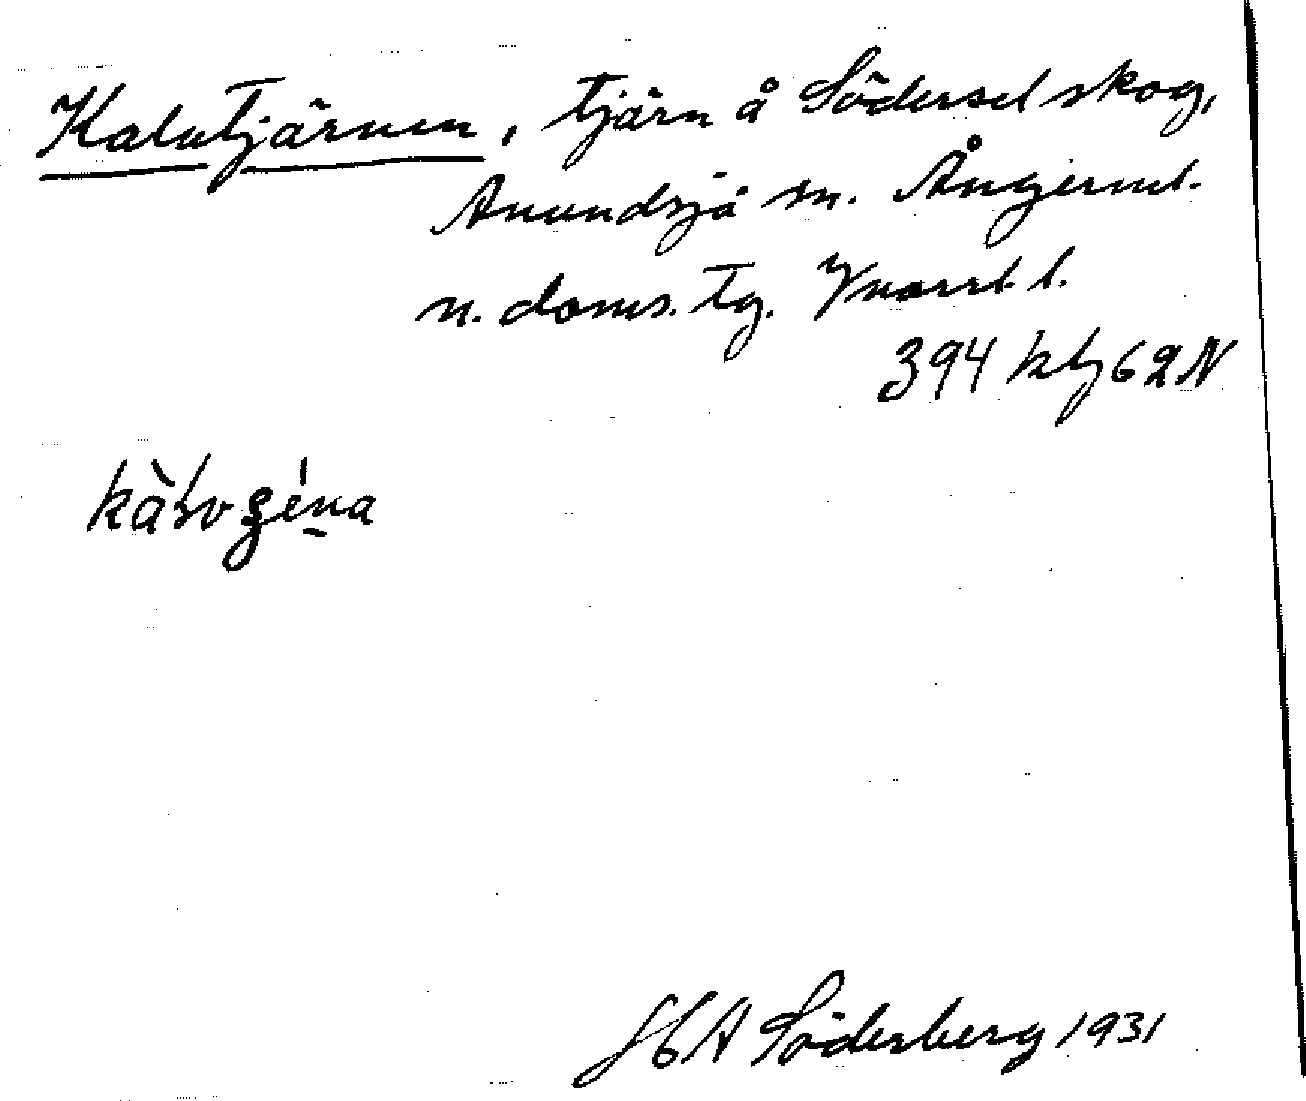 Kalvtjärnen, tjärn å Södersel skog,
Anundsjö sn. Ångerml.
n. doms. tg. Vnorrl. l.
394 klg 62 N
H A Söderberg 1931